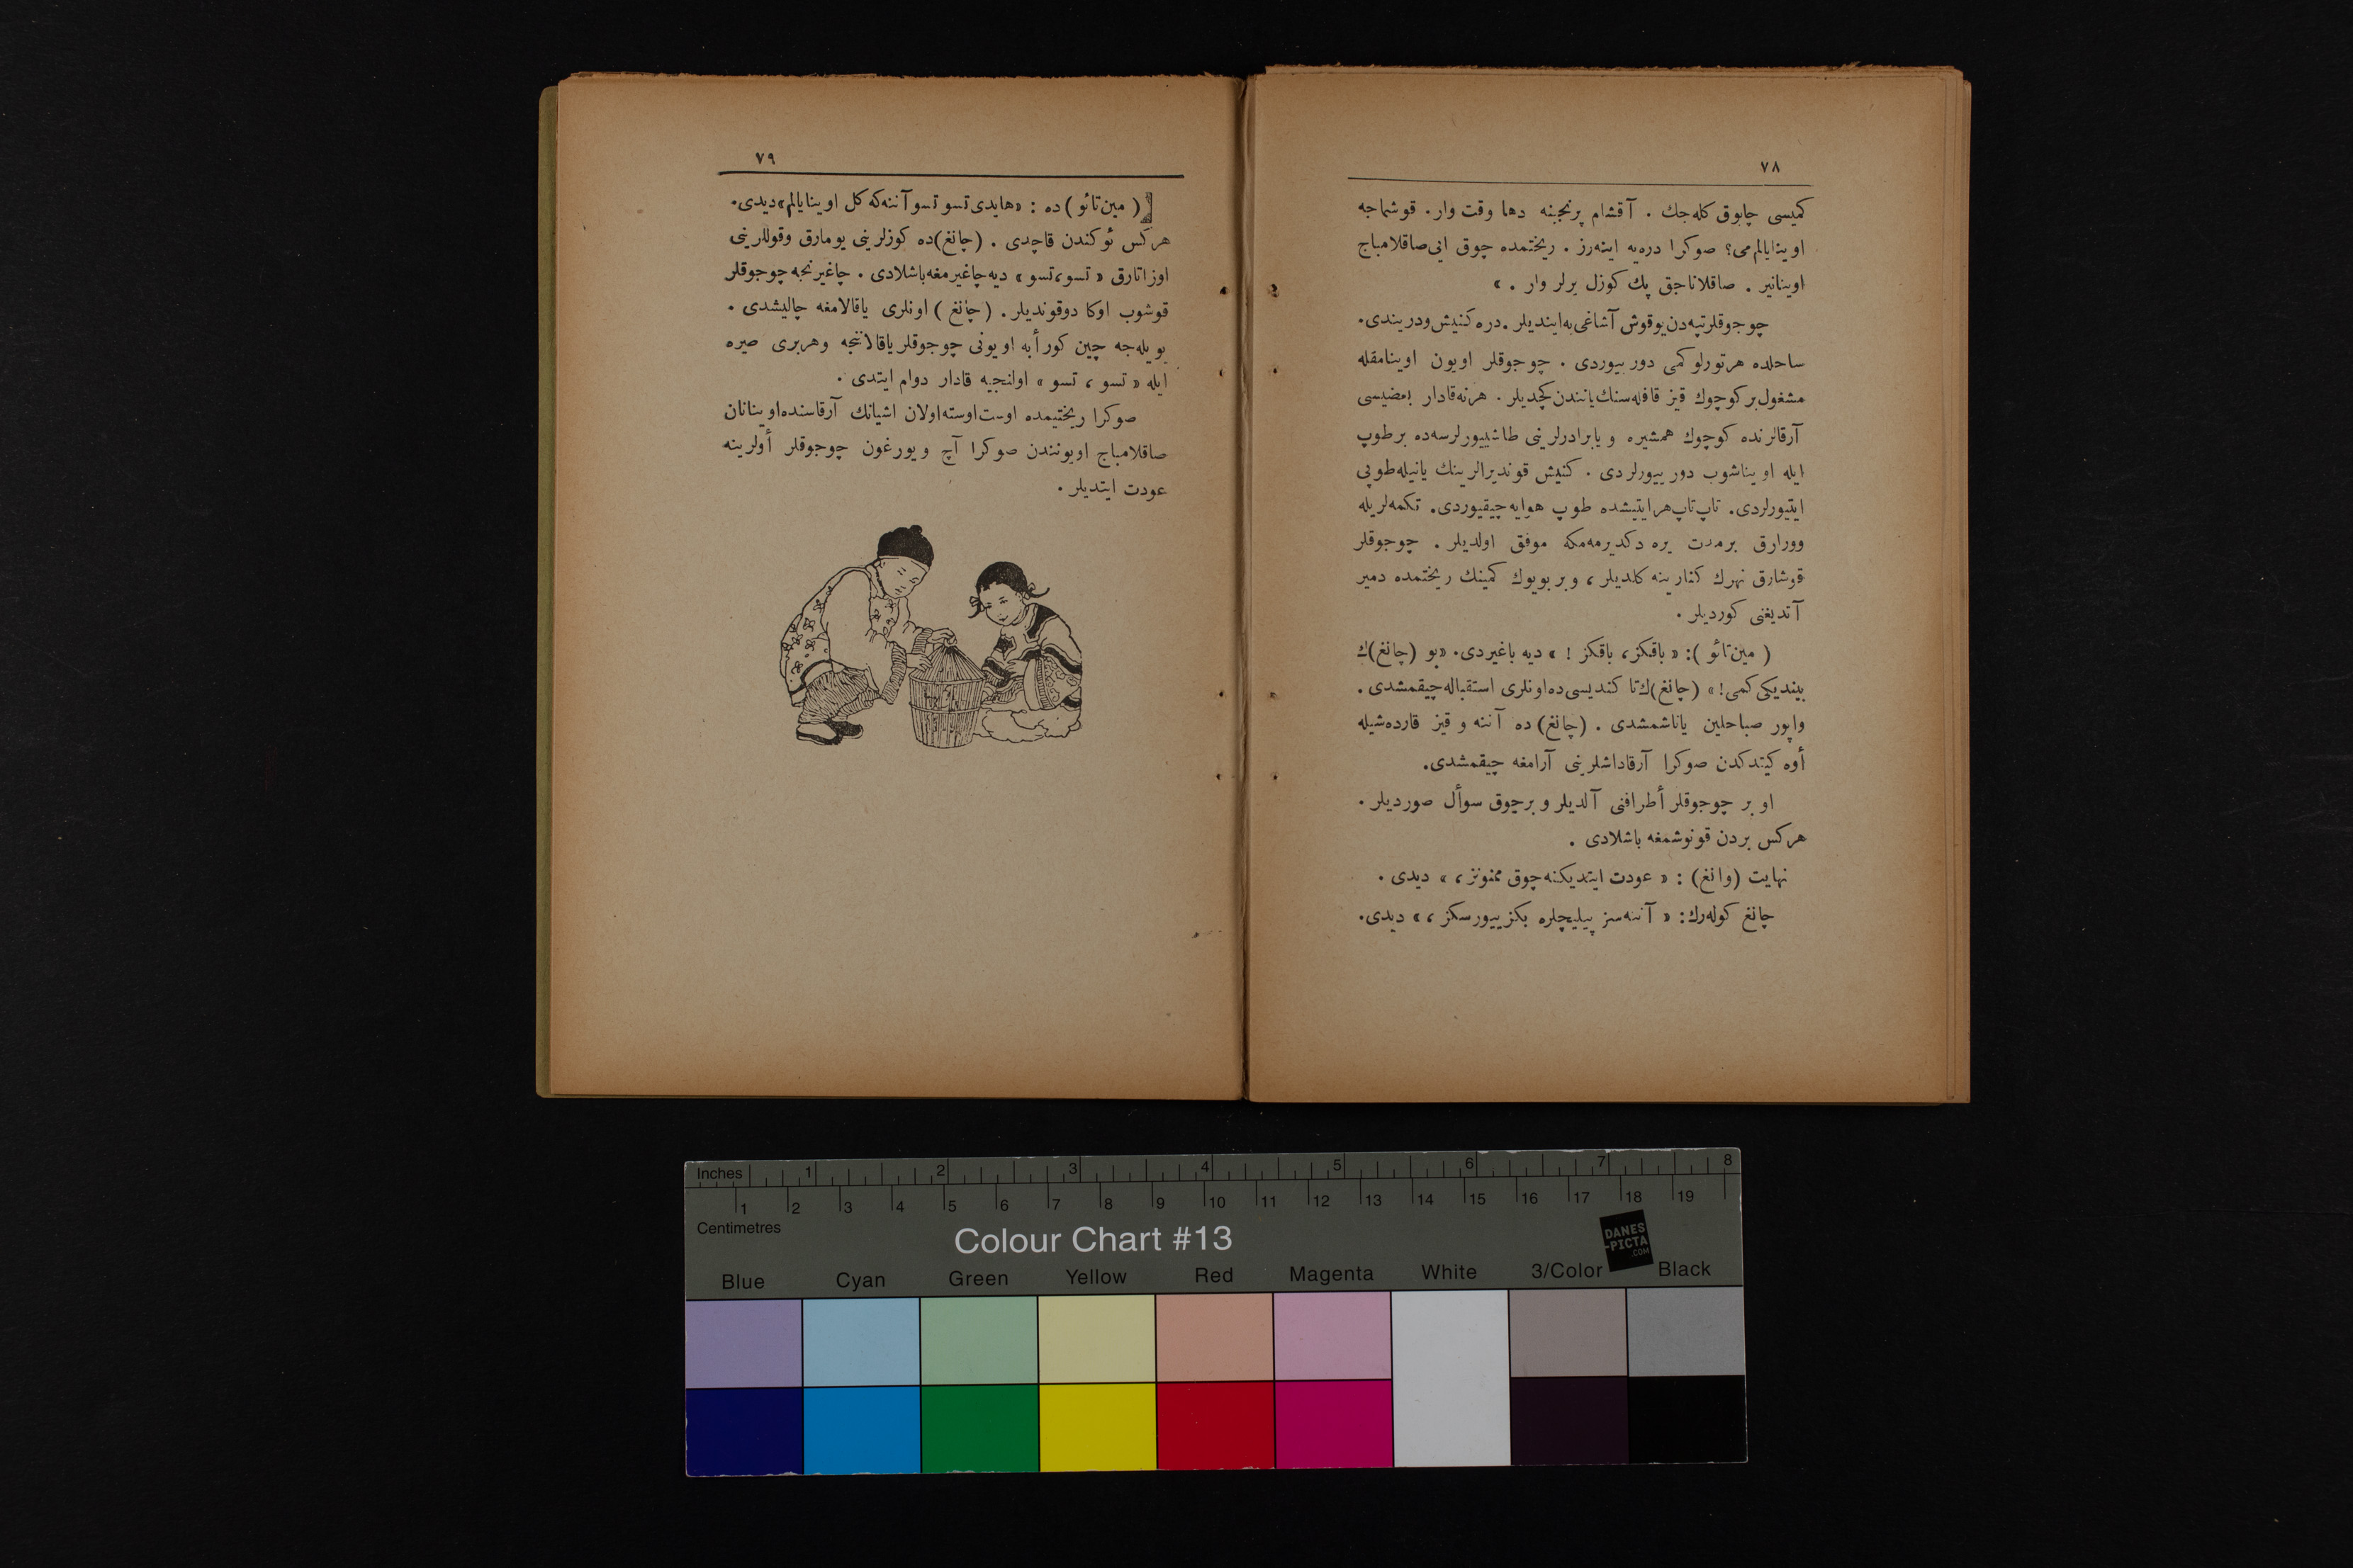 ٧٨
كميسی چابوق كله‌جك . آقشام پرنجبنه دها وقت وار. قوشماجه
اوينايالم‌می؟ صوكرا دره‌يه اينه‌رز . ريختمده چوق ايی صاقلامباج
اوينانير . صاقلاناجق پك كوزل يرلر وار . »
چوجوقلر تپه‌دن يوقوش آشاغی‌يه اينديلر . دره كنيش ودريندی.
ساحلده هر تورلو كمی دوريیوردی . چوجوقلر اويون اوينامقله
مشغول بر كوچوك قيز قافله‌سنك ياننده‌ن كچديلر . هر نه قادار بعضيسی
آرقالرنده كوچوك همشيره و يا برادرلرينی طاشييورلرسه‌ده بر طوپ
ايله اويناشوب دورييورلردی . كنيش قونديرالرينك يانيله طوپی
ايتيورلردی. تاپ تاپ هر ايتيشده طوپ هوايه چيقيوردی. تكمه‌لريله
وورارق بر مدت يره دكديرمه‌مكه موفق اولديلر . چوجوقلر
قوشارق نهرك كنارينه كلديلر ، و بر بويوك كمينك ريختمده دمير
آتديغنی كورديلر .
( مين‌تائو ): « باقكز، باقكز ! » ديه باغيردی. «بو (چانغ)ك
بينديكی كمی! » (چانغ)ك تا كنديسی ده اونلری استقباله چيقمشدی.
واپور صباحلين ياناشمشدی . (چانغ) ده آننه و قيز قارده‌شيله
أوه كيتدكدن صوكرا آرقاداشلرينی آرامغه چيقمشدی.
او بر چوجوقلر أطرافنی آلديلر و برچوق سوأل صورديلر .
هركس بردن قونوشمغه باشلادی .
نهايت (وانغ) : « عودت ايتديكنه چوق ممنونز ، » ديدی .
چانغ كوله‌رك: « آننه‌سز پيليچلره بكزييورسكز ، » ديدی.
٧٩
( مين‌تائو ) ده : «هايدی تسو تسو آننه‌كه كل اوينايالم» ديدی.
هركس ئوكندن قاچدی . (چانغ) ده كوزلرينی يومارق وقوللرينی
اوزاتارق « تسو، تسو » ديه چاغيرمغه باشلادی . چاغيرنجه چوجوقلر
قوشوب اوكا دوقونديلر . (چانغ) اونلری ياقالامغه چاليشدی .
بويله‌جه چين كورأبه اويونی چوجوقلر ياقالانجه وهربری صيره
ايله « تسو ، تسو » اولنجيه قادار دوام ايتدی .
صوكرا ريختيمده اوست اوسته اولان اشيانك آرقاسنده اوينانان
صاقلامباج اويونندن صوكرا آچ ويورغون چوجوقلر أولرينه
عودت ايتديلر .
Inches 1 2 3 4 5 6 7 8
1 2 3 4 5 6 7 8 9 10 11 12 13 14 15 16 17 18 19
Centimetres
Colour Chart #13
DANES
-PICTA
.COM
Blue Cyan Green Yellow Red Magenta White 3/Color Black